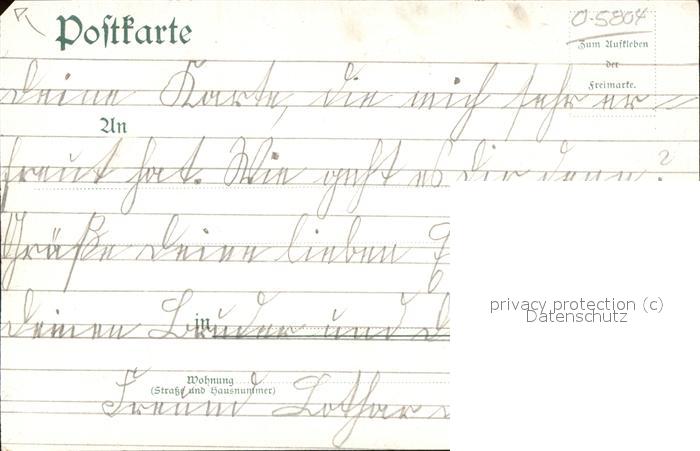 O-5804
Postkarte
Zum Aufkleben
der
Freimarke.
Deine Karte, die mich sehr er-
An
freut hat. Wie geht es Dir denn?
Grüße Deine lieben
privacy protection (c)
Datenschutz
in
Deinen Bruder und
Wohnung
(Straße und Hausnummer)
Freund Lothar